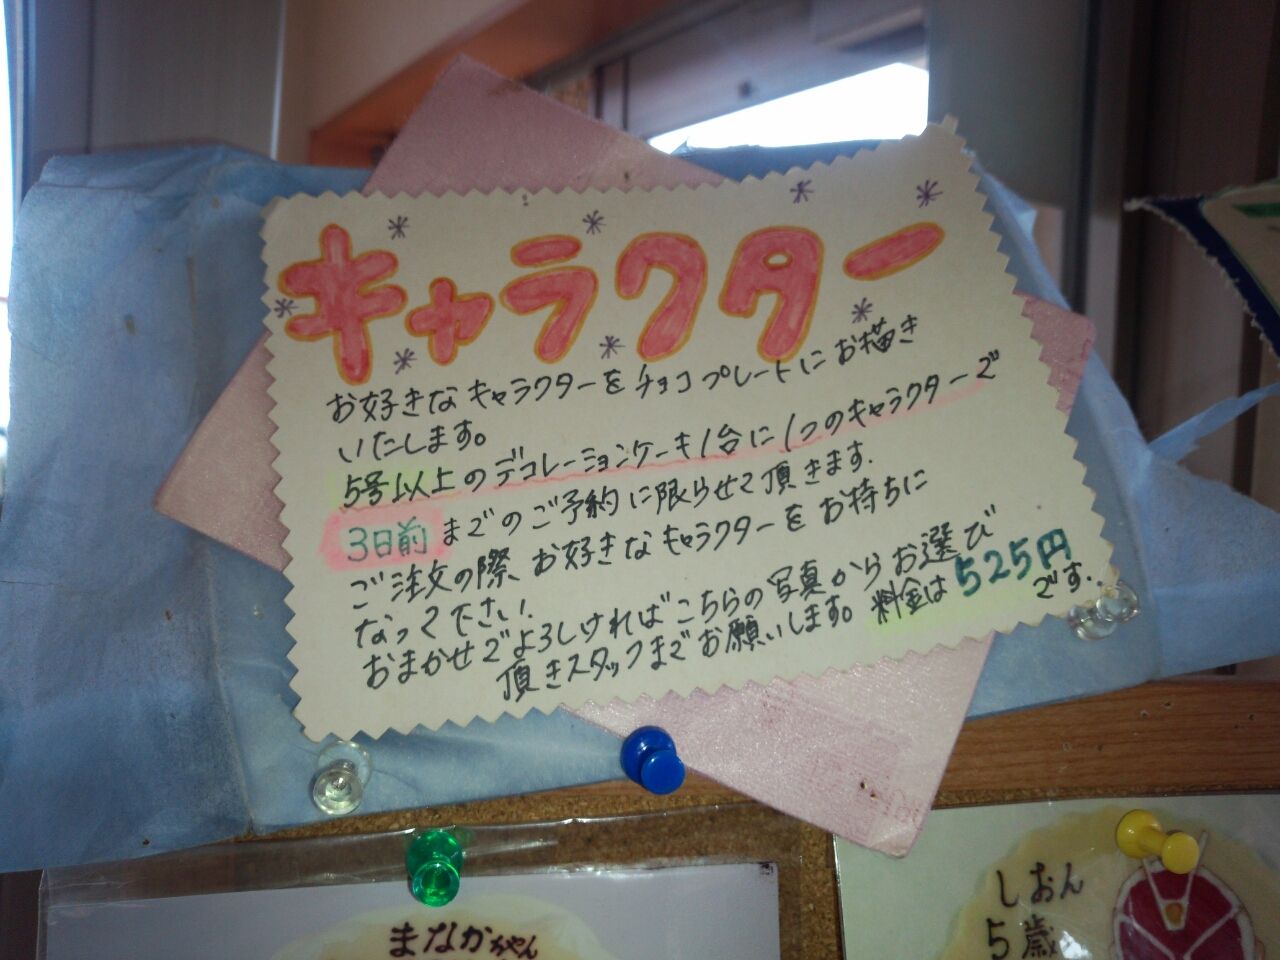 キャラクター
お好きなキャラクターをチョコプレートにお描き
いたします。
5号以上のデコレーションケーキ1台に1つのキャラクターで
3日前までのご予約に限らせて頂きます.
ご注文の際、お好きなキャラクターをお持ちに
なって下さい.
おまかせでよろしければこちらの写真からお選び
頂きスタッフまでお願いします。料金は525円
です.
まなかちゃん
しおん
5歳